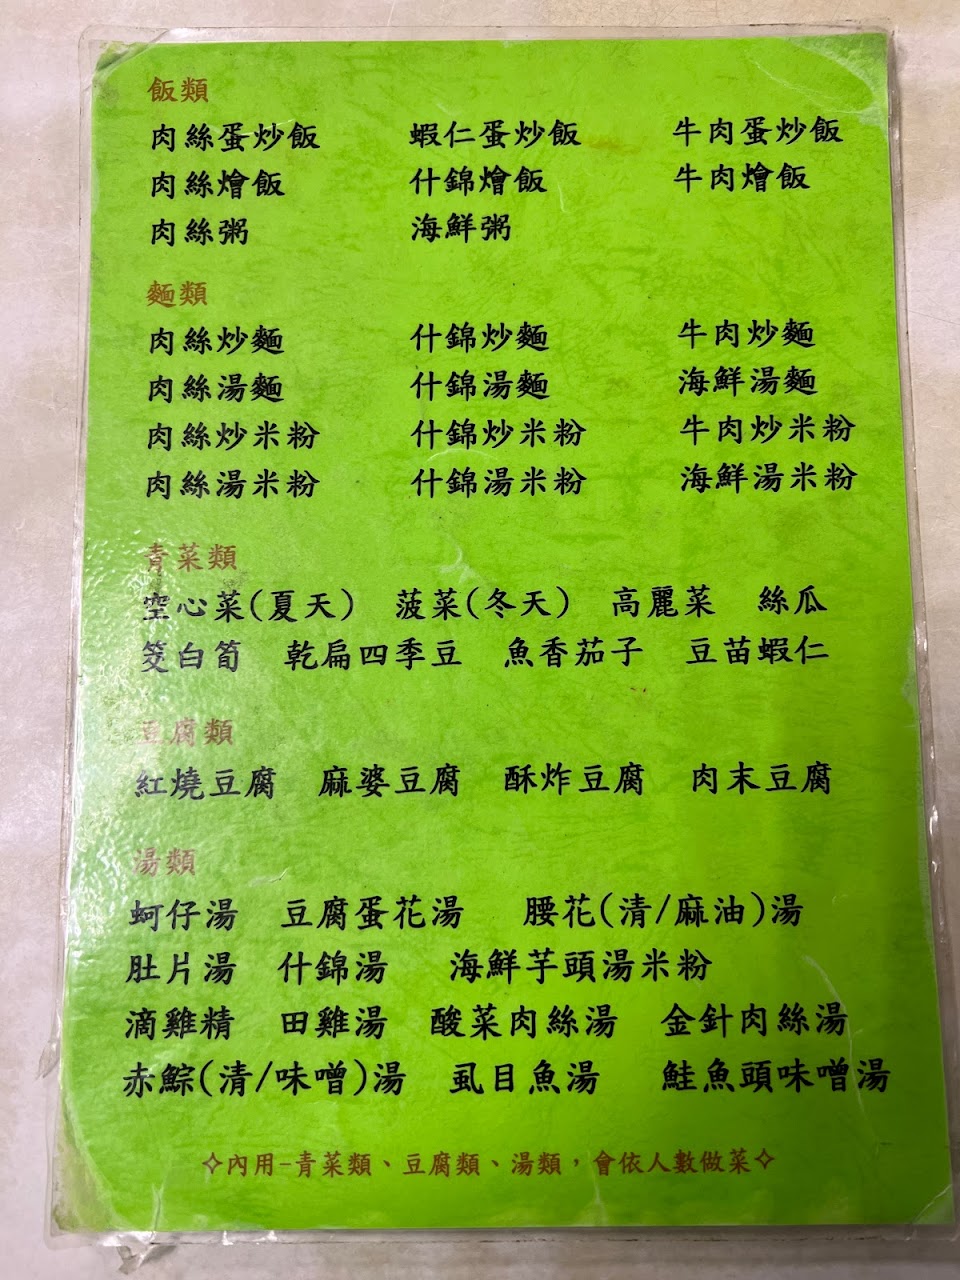 飯類
肉絲蛋炒飯 蝦仁蛋炒飯 牛肉蛋炒飯
肉絲燴飯 什錦燴飯 牛肉燴飯
肉絲粥 海鮮粥
麵類
肉絲炒麵 什錦炒麵 牛肉炒麵
肉絲湯麵 什錦湯麵 海鮮湯麵
肉絲炒米粉 什錦炒米粉 牛肉炒米粉
肉絲湯米粉 什錦湯米粉 海鮮湯米粉
青菜類
空心菜(夏天) 菠菜(冬天) 高麗菜 絲瓜
筊白筍 乾扁四季豆 魚香茄子 豆苗蝦仁
豆腐類
紅燒豆腐 麻婆豆腐 酥炸豆腐 肉末豆腐
湯類
蚵仔湯 豆腐蛋花湯 腰花(清/麻油)湯
肚片湯 什錦湯 海鮮芋頭湯米粉
滴雞精 田雞湯 酸菜肉絲湯 金針肉絲湯
赤鯮(清/味噌)湯 虱目魚湯 鮭魚頭味噌湯
✧內用-青菜類、豆腐類、湯類，會依人數做菜✧